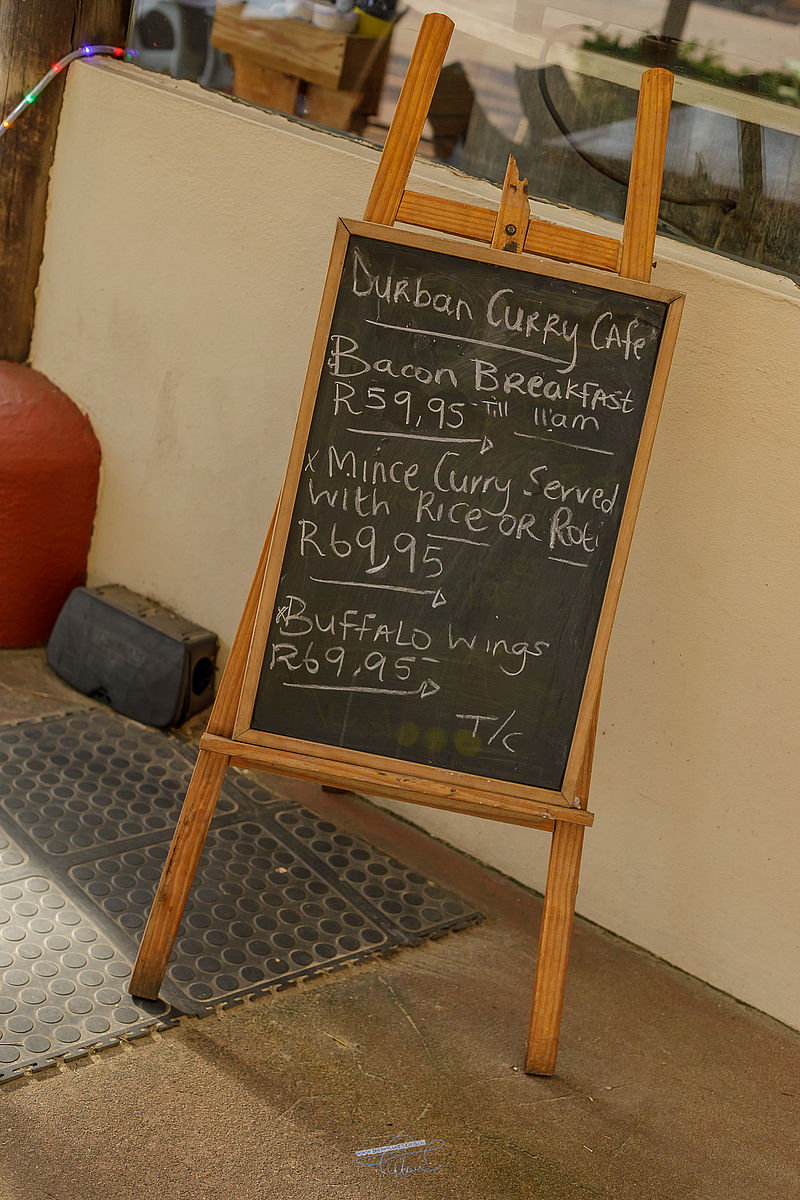 Durban Curry Cafe
Bacon Breakfast
R59,95 Till 11am
x Mince Curry Served
with Rice or Roti
R69,95
x Buffalo Wings
R69.95
T/C